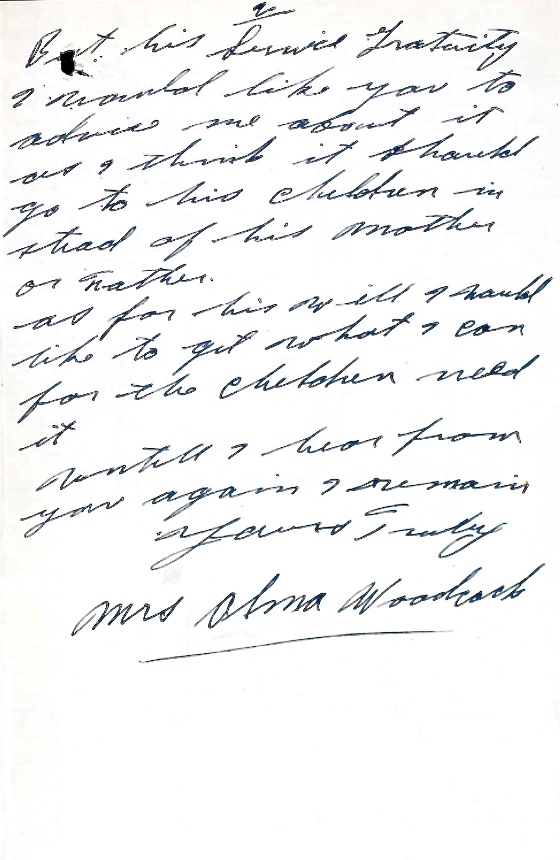 2
But his Service Gratuity
I would like you to
advise me about it
as I think it should
go to his children in
stead of his mother
or Father.
as for his will I would
like to get what I can
for the children need
it
untill I hear from
you again I remain
Yours Truly
Mrs Alma Woodcock